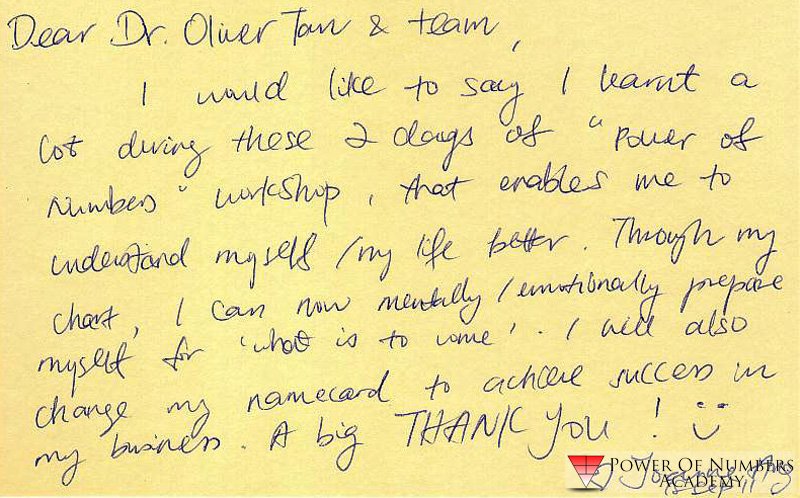 Dear Dr. Oliver Tan & team,
I would like to say I learnt a
lot during these 2 days of "Power of
Numbers" workshop, that enables me to
understand myself/my life better. Through my
chart, I can now mentally/emotionally prepare
myself for 'what is to come'. I will also
change my namecard to achieve success in
my business. A big THANK YOU! :)
POWER OF NUMBERS
ACADEMY